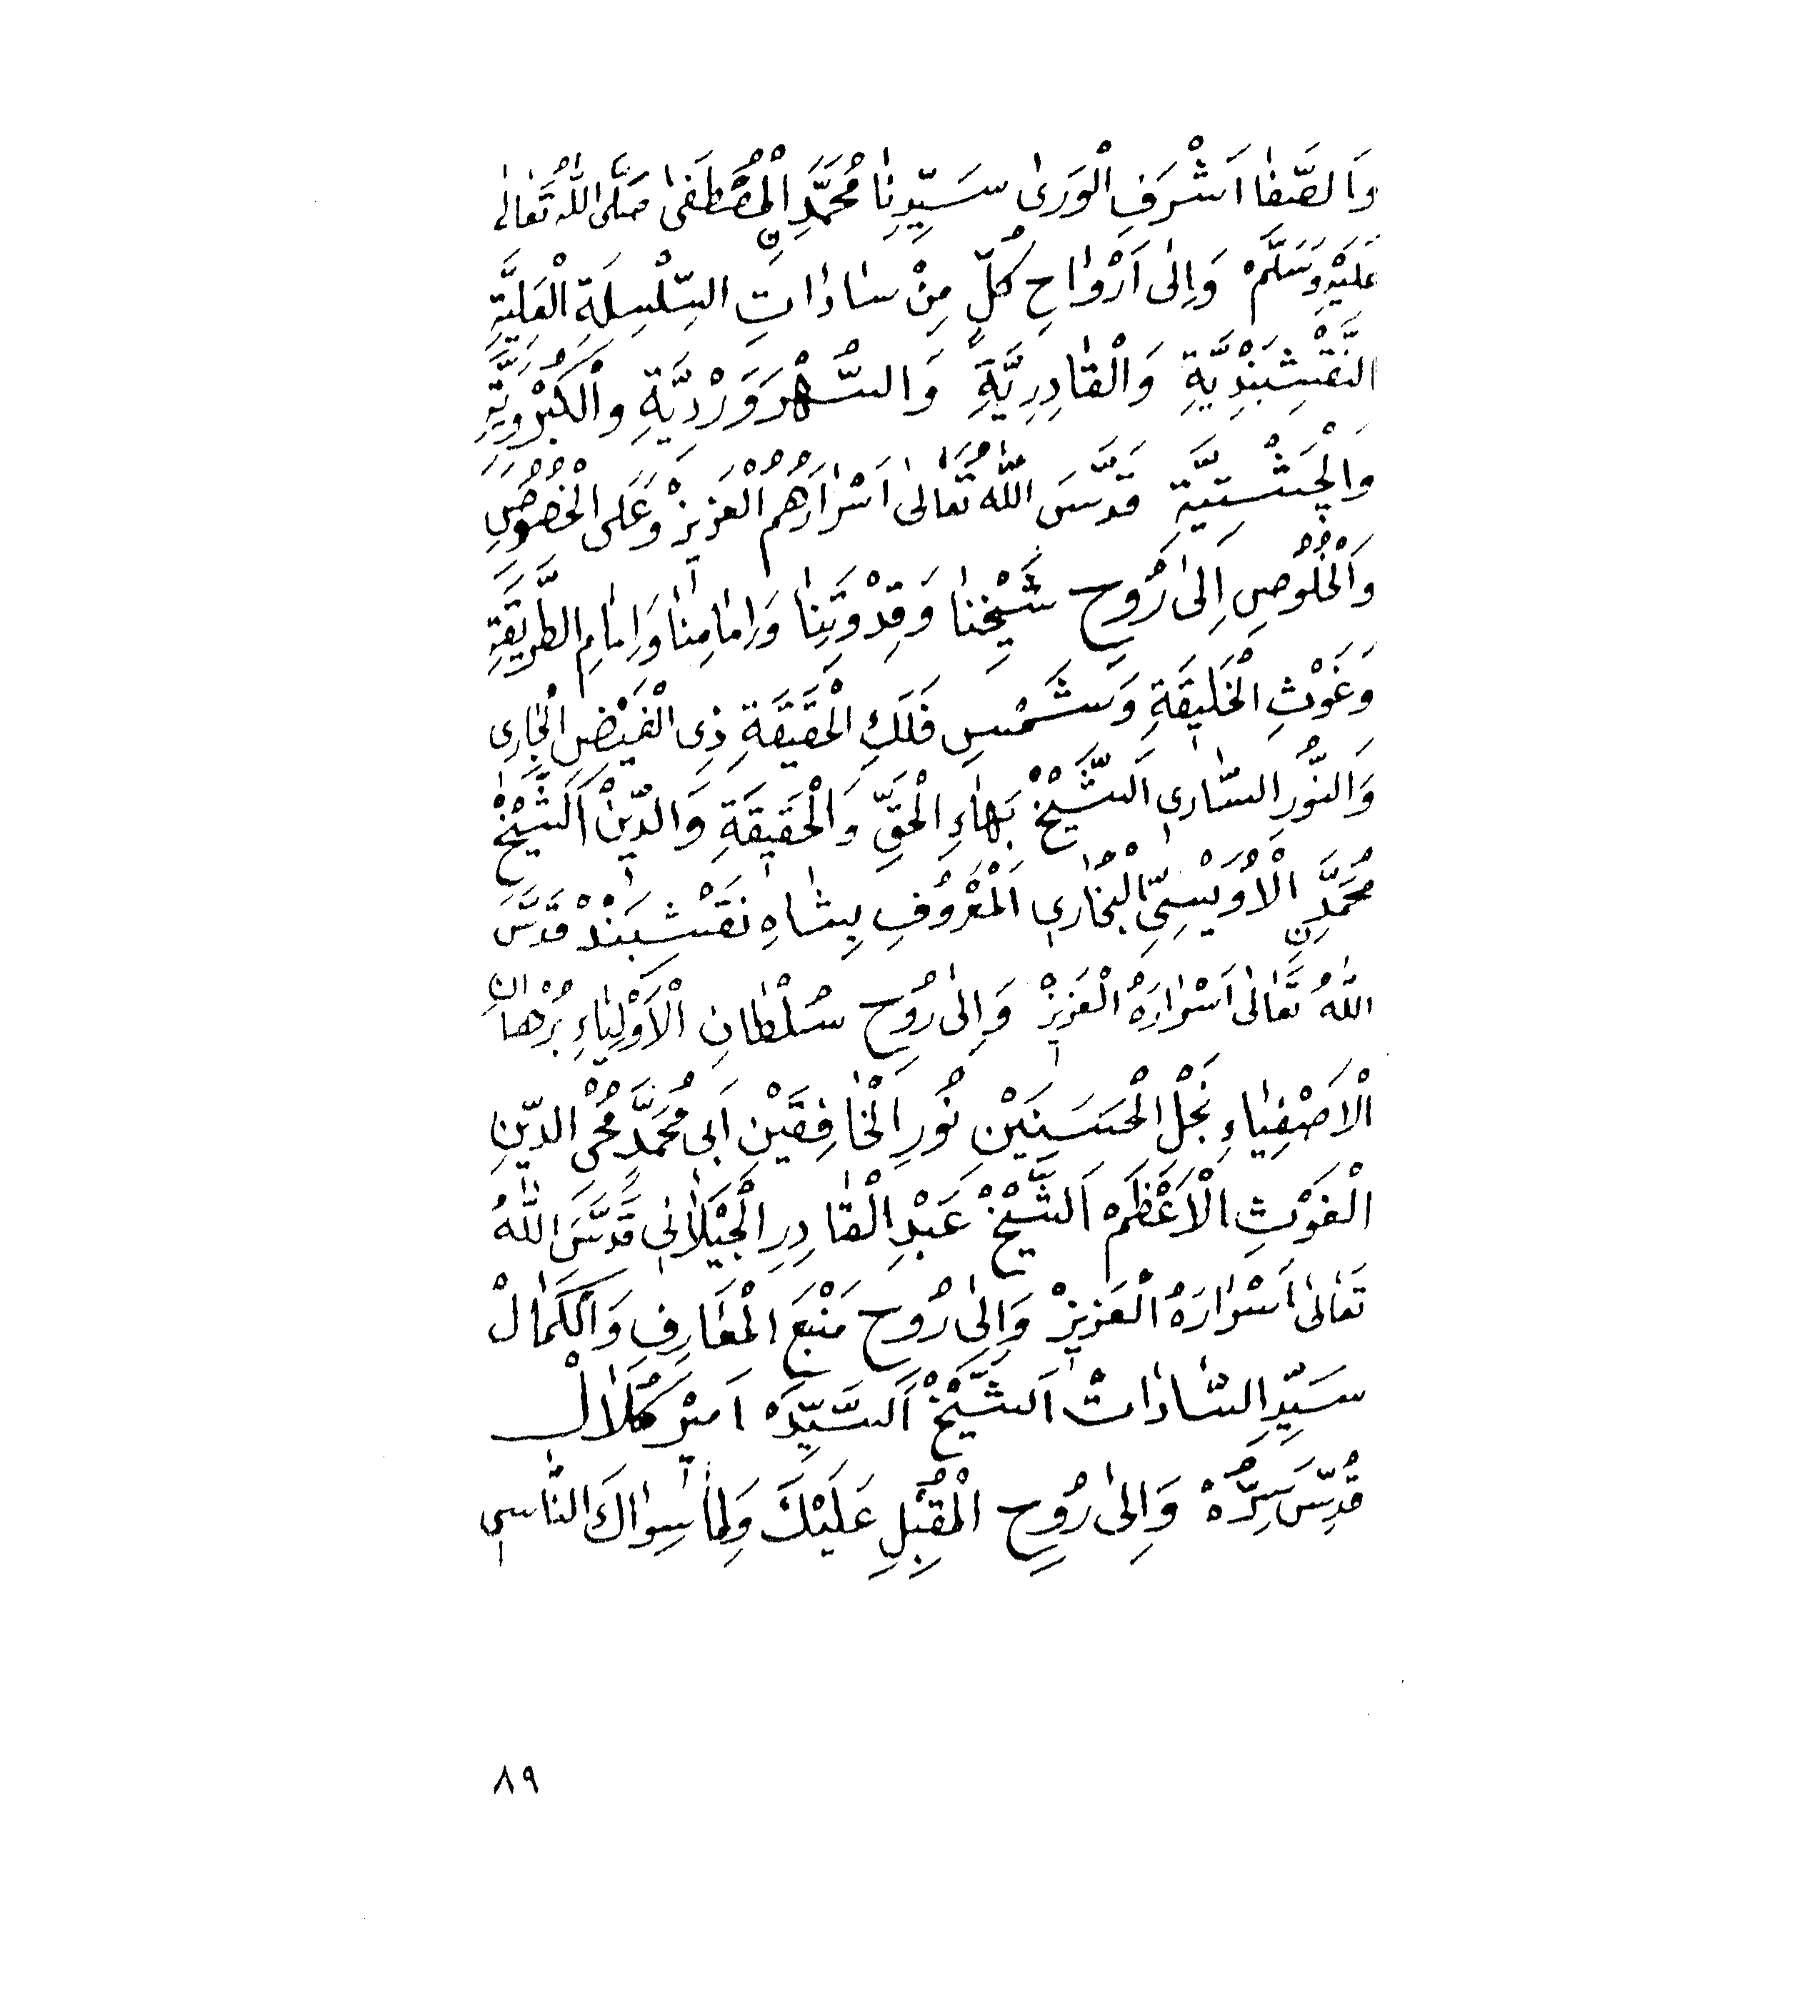 وَالصَّفَا اَشْرَفِ الْوَرٰى سَيِّدِنَا مُحَمَّدِ نِ الْمُصْطَفٰى صَلَّى اللّٰهُ تَعَالٰى
عَلَيْهِ وَسَلَّمْ وَاِلٰى اَرْوَاحِ كُلٍّ مِنْ سَادَاتِ السِّلْسِلَةِ الْعَلِيَّةِ
النَّقْشِبَنْدِيَّةِ وَالْقَادِرِيَّةِ وَالسُّهْرَوَرْدِيَّةِ وَالْكُبْرَوِيَّةِ
وَالْچِشْتِيَّةِ قَدَّسَ اللّٰهُ تَعَالٰى اَسْرَارَهُمُ الْعَزِيزْ وَعَلَى الْخُصُوصِ
وَالْخُلُوصِ اِلٰى رُوحِ شَيْخِنَا وَقِدْوَتِنَا وَاِمَامِنَا وَاِمَامِ الطَّرِيقَةِ
وَغَوْثِ الْخَلِيقَةِ وَشَمْسِ فَلَكِ الْحَقِيقَةِ ذِى الْفَيْضِ الْجَارِى
وَالنُّورِ السَّارِى اَلشَّيْخْ بَهَاءِ الْحَقِّ وَالْحَقِيقَةِ وَالدِّينْ اَلشَّيْخْ
مُحَمَّدِ نِ الْاُوَيْسِىِّ الْبُخَارِى الْمَعْرُوفِ بِشَاهِ نَقْشِبَنْدْ قَدَّسَ
اللّٰهُ تَعَالٰى اَسْرَارَهُ الْعَزِيزْ وَاِلٰى رُوحِ سُلْطَانِ الْاَوْلِيَاءِ بُرْهَانِ
الْاَصْفِيَاءِ نَجْلِ الْحَسَنَيْنِ نُورِ الْخَافِقَيْنِ اَبِى مُحَمَّدٍ مُحْىِ الدِّينِ
الْغَوْثِ الْاَعْظَمْ اَلشَّيْخْ عَبْدِ الْقَادِرِ الْجَيْلَانِى قَدَّسَ اللّٰهُ
تَعَالٰى اَسْرَارَهُ الْعَزِيزْ وَاِلٰى رُوحِ مَنْبَعِ الْمَعَارِفِ وَالْكَمَالْ
سَيِّدِ السَّادَاتْ اَلشَّيْخْ اَلسَّيِّدْ اَمِيرْ كُلَالْ
قُدِّسَ سِرُّهْ وَاِلٰى رُوحِ الْمُقْبِلِ عَلَيْكَ وَلِمَا سِوَاكَ النَّاسِى
٨٩